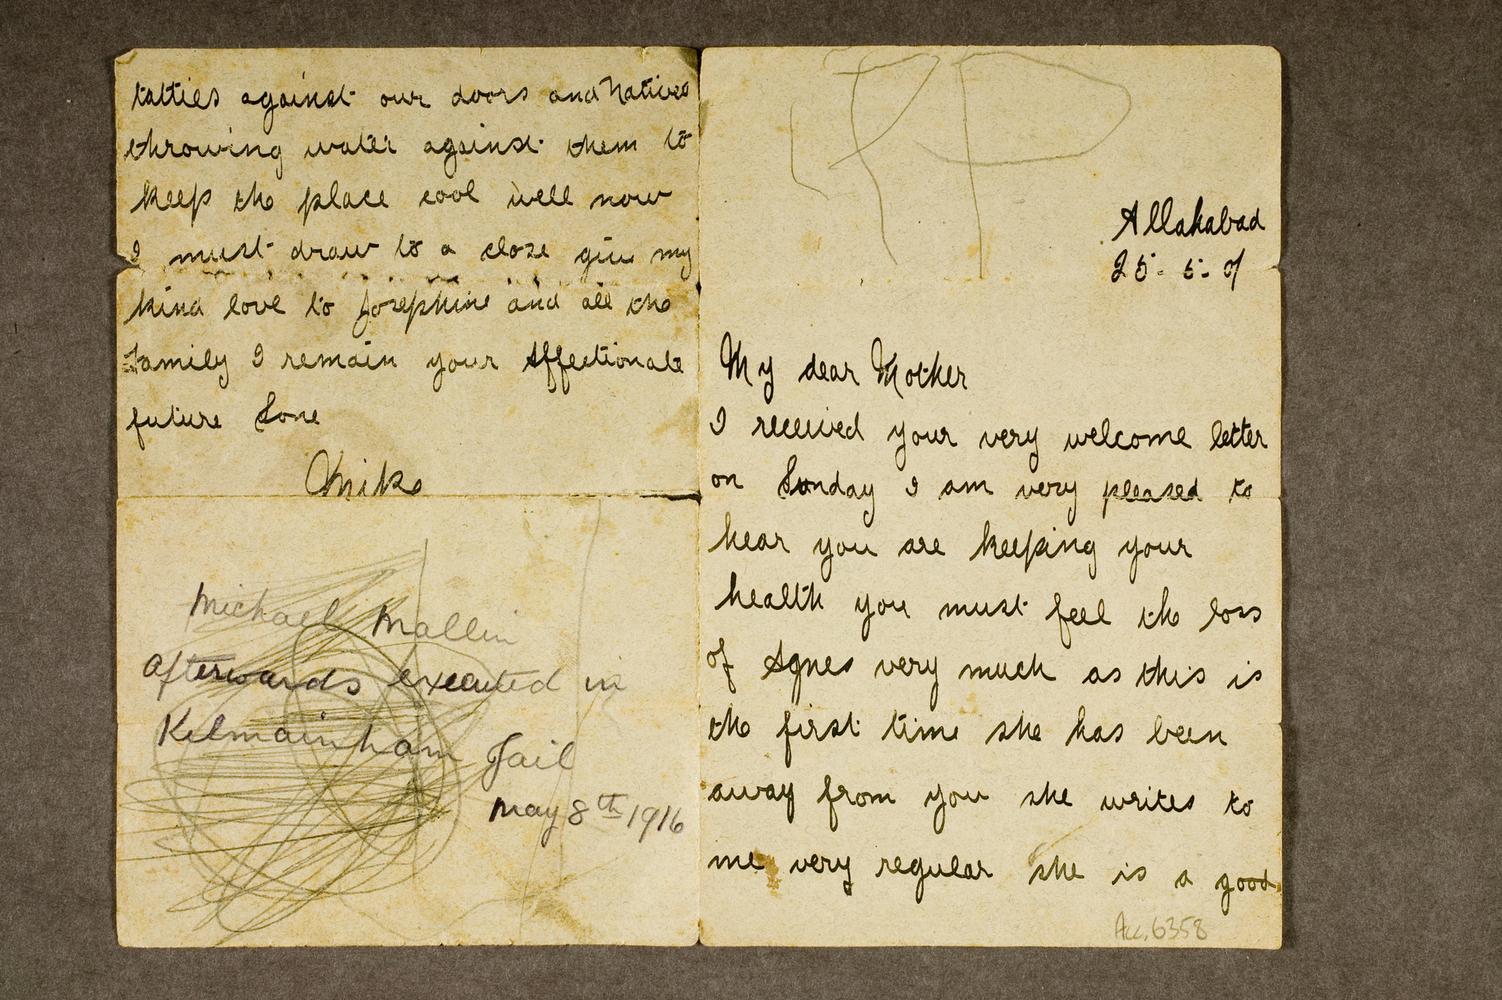 tatties against our doors and Natives
throwing water against them to
keep the place cool well now
I must draw to a close give my
kind love to Josephine and all the
family I remain your Affectionate
future Sone
Mike
Michael Mallin
afterwards executed in
Kilmainham Jail
May 8th 1916
Allahabad
25-5-01
My dear Mother
I received your very welcome letter
on Sunday I am very pleased to
hear you are keeping your
health you must feel the loss
of Agnes very much as this is
the first time she has been
away from you she writes to
me very regular she is a good
Acc. 6358